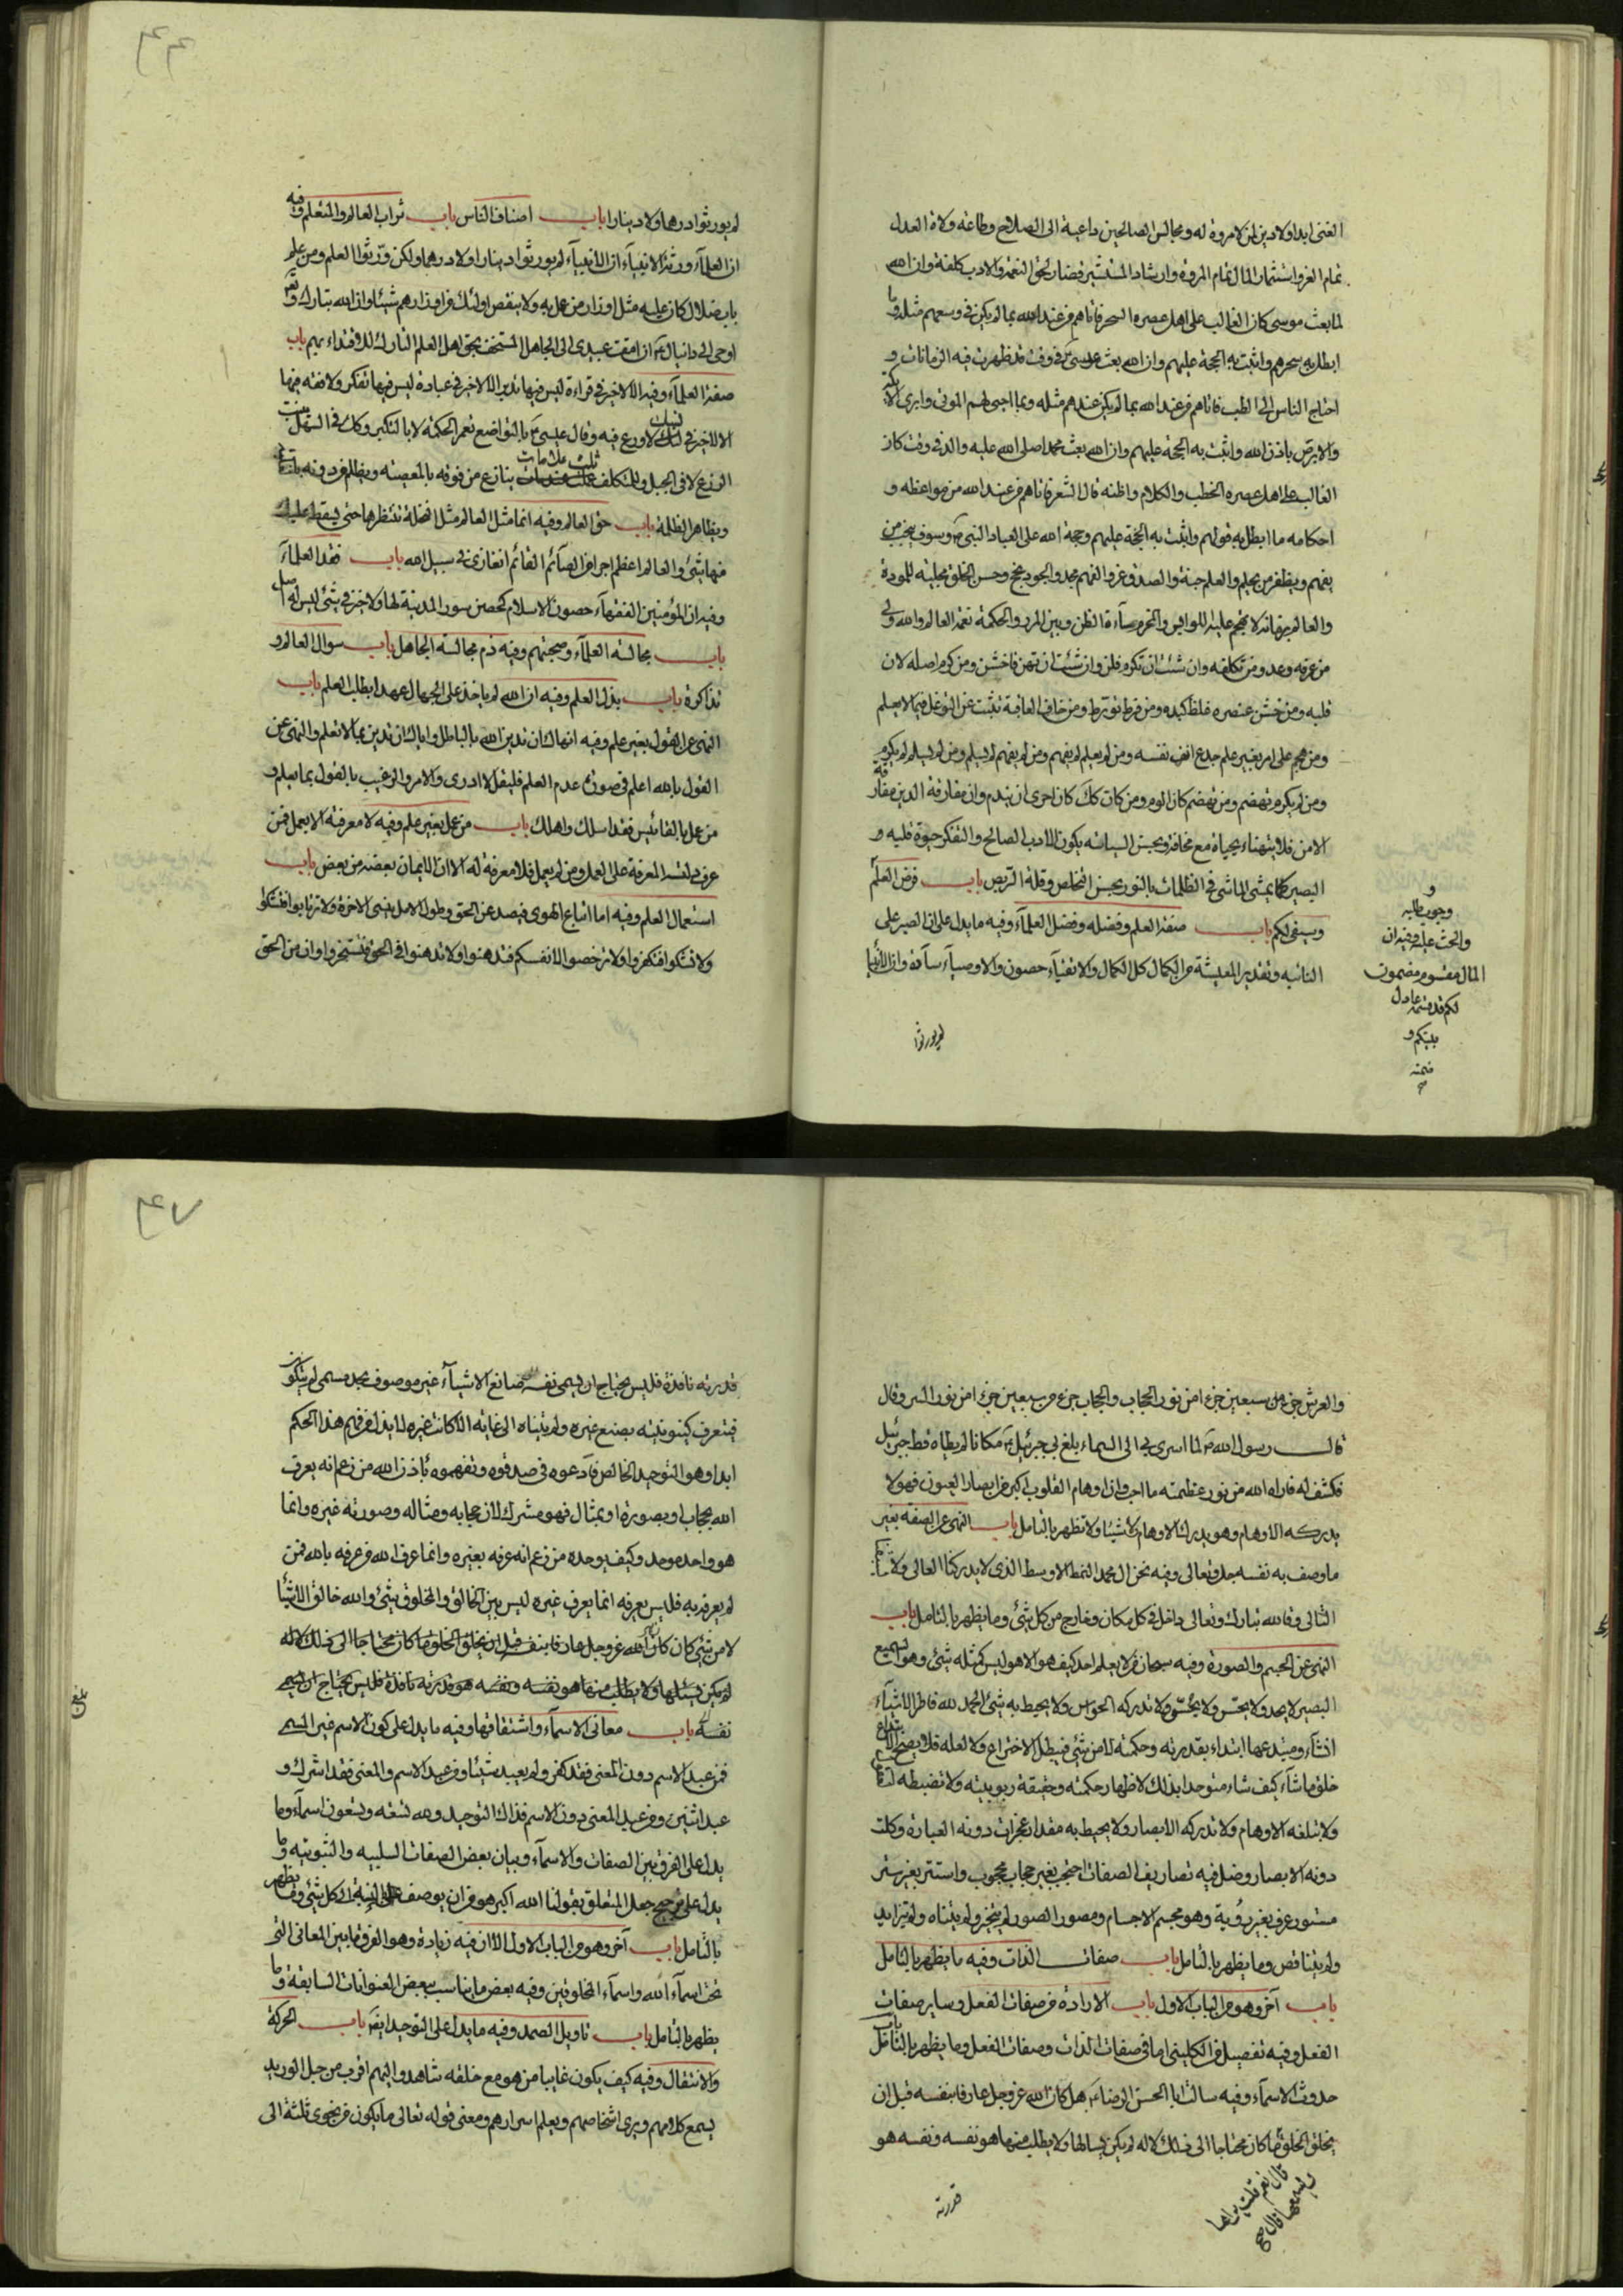 الغنى ابدا ولا دين لمن لا مروة له ومجالس الصالحين داعية الى الصلاح وطاعة ولاة العدل
تمام العز واستثمار المال تمام المروة وارشاد المستشير قضاء لحق النعمة والادب كلفة وان الله
لما بعث موسى كان الغالب على اهل عصره السحر فاتاهم من عند الله بما لم يكن في وسعهم مثله وما
ابطل به سحرهم واثبت به الحجة عليهم وان الله بعث عيسى في وقت قد ظهرت فيه الزمانات و
احتاج الناس الى الطب فاتاهم من عند الله بما لم يكن عندهم مثله وبما احيى لهم الموتى وابرئ الاكمه
والابرص باذن الله واثبت به الحجة عليهم وان الله بعث محمدا صلى الله عليه واله في وقت كان
الغالب على اهل عصره الخطب والكلام واظنه قال الشعر فاتاهم من عند الله من مواعظه و
احكامه ما ابطل به قولهم واثبت به الحجة عليهم وحجة الله على العباد النبي وسوف ينجب من
يفهم ويظفر من يحلم والعلم جنة والصدق عز والفهم مجد والجود نجح وحسن الخلق مجلبة للمودة
والعالم بزمانه لا يهجم عليه اللوابس والحزم مساءة الظن وبين المرء والحكمة نعمة العالم والله ولي
من عرفه وعدو من تكلفه وان شئت ان تكرم فلن وان شئت ان تهن فاخشن ومن كرم اصله لان
قلبه ومن خشن عنصره غلظ كبده ومن فرط تورط ومن خاف العاقبة تثبت عن التوغل فيما لا يعلم
ومن هجم على امر بغير علم جدع انف نفسه ومن لم يعلم لم يفهم ومن لم يفهم لم يسلم ومن لم يسلم لم يكرم
ومن لم يكرم تهضم ومن تهضم كان الوم ومن كان كك كان احرى ان يندم وان مفارقة الدين مفارقة
الامن فلا يتهناء بحياة مع مخافة وبحسن السياسة يكون الادب الصالح والتفكر حيوة قلب و
البصير كما يمشي الماشي في الظلمات بالنور بحسن التخلص وقلة التربص باب فرض العلم
وسيفى لكم باب صفة العلم وفضله وفضل العلماء وفيه ما يدل على ان الصبر على
النائبه وتقدير المعيشة من الكمال كل الكمال والاتقياء حصون والاوصياء سادة وان الانبيا
لم يورثوا
و
وجوب طلبه
والحث عليه وفيه ان
المال مقسوم مضمون
لكم قد قسمه عادل
بينكم و
ضمنه
صح
٤٦
لم يورثوا درهما ولا دينارا باب اصناف الناس باب ثواب العالم والمتعلم وفيه
ان العلماء ورثة الانبياء ان الانبياء لم يورثوا دينارا ولا درهما ولكن ورثوا العلم ومن علم
باب ضلال كان عليه مثل اوزار من عمل به ولا ينقص اولئك من اوزارهم شيئا وان الله تبارك وتعالى
اوحى الى دانيال ان امقت عبيدى الى الجاهل المستخف بحق اهل العلم التارك للاقتداء بهم باب
صفة العلماء وفيه الا لا خير في قراءة ليس فيها تدبر الا لا خير في عبادة ليس فيها تفكر ولا فقه فيها
الا لا خير في نسك لا ورع فيه وقال عيسى بالتواضع تعمر الحكمة لا بالتكبر وكك في السهل ينبت
الزرع لا في الجبل وللمتكلف ثلث علامات ينازع من فوقه بالمعصية ويظلم من دونه بالغلبة
ويظاهر الظلمة باب حق العالم وفيه انما مثل العالم مثل النخلة تنتظرها حتى يسقط عليك
منها شئ والعالم اعظم اجرا من الصائم القائم الغازى في سبيل الله باب فقد العلماء
وفيه ان المؤمنين الفقهاء حصون الاسلام كحصن سور المدينة لها ولا خير في شئ ليس له اصل
باب مجالسة العلماء وصحبتهم وفيه ذم مجالسة الجاهل باب سوال العالم و
تذاكره باب بذل العلم وفيه ان الله لم ياخذ على الجهال عهدا بطلب العلم باب
النهى عن القول بغير علم وفيه انهاك ان تدين الله بالباطل واياك ان تدين بما لا تعلم والنهى عن
القول بالله اعلم في صورة عدم العلم فليقل لا ادرى والامر والترغيب بالقول بما يعلم و
من عمل بالمقائيس فقد اسلك واهلك باب من عمل بغير علم وفيه لا معرفة الا بعمل فمن
عرف دلته المعرفة على العمل ومن لم يعمل فلا معرفة له الا ان الايمان بعضه من بعض باب
استعمال العلم وفيه اما اتباع الهوى فيصد عن الحق وطول الامل ينسى الاخرة ولا ترتابوا فتشكوا
ولا تشكوا فتكفروا ولا ترخصوا لانفسكم فتدهنوا ولا تدهنوا في الحق فتخسروا وان من الحق
والعرش جزء من سبعين جزءا من نور الحجاب والحجاب جزء من سبعين جزءا من نور الستر وقال
قال رسول الله لما اسرى بى الى السماء بلغ بى جبرئيل مكانا لم يطاه قط جبرئيل
فكشف له فاراه الله من نور عظمته ما احب وان اوهام القلوب اكبر من ابصار العيون فهو لا
يدركه الاوهام وهو يدرك الاوهام لا شيئا ولا تظهر بالتامل باب النهى عن الصفة بغير
ما وصف به نفسه جل وتعالى وفيه نحن ال محمد النمط الاوسط الذى لا يدركنا الغالى ولا
التالى وفالله تبارك وتعالى داخل في كل مكان وخارج من كل شئ وما يظهر بالتامل باب
النهى عن الجسم والصورة وفيه سبحان من لا يعلم احد كيف هو الا هو ليس كمثله شئ وهو السميع
البصير لا يحد ولا يحس ولا يجس ولا تدركه الحواس ولا يحيط به شئ الحمد لله فاطر الاشياء
انشاء ومبتدعها ابتداء بقدرته وحكمته لا من شئ فيبطل الاختراع ولا لعلة فلا يصح الابتداع
خلق ما شاء كيف شاء متوحدا بذلك لاظهار حكمته وحقيقة ربوبيته ولا تضبطه
ولا تبلغه الاوهام ولا تدركه الابصار ولا يحيط به مقدار عجزت دونه العبارة وكلت
دونه الابصار وضل فيه تصاريف الصفات احتجب بغير حجاب محجوب واستتر بغير ستر
مستور عرف بغير رؤية وهو مجسم الاجسام ومصور الصور لم يتجز ولم يتناه ولم يتزايد
ولم يتناقص وما يظهر بالتامل باب صفات الذات وفيه ما يظهر بالتامل
باب آخر وهو من الباب الاول باب الارادة من صفات الفعل وساير صفات
الفعل وفيه تفصيل من الكليني اما في صفات الذات وصفات الفعل وما يظهر بالتامل باب
حدوث الاسماء وفيه سالت ابا الحسن الرضاء هل كان الله عز وجل عارفا بنفسه قبل ان
يخلق الخلق ما كان محتاجا الى ذلك لانه لم يكن يسالها ولا يطلب منها هو نفسه ونفسه هو
قال نعم قلت يراها
ويسمعها قال صح
قدرته
٤٧
قدرته نافذة فليس يحتاج ان يسمى نفسه صانع الاشياء غير موصوف بحد مسمى لم يتكون
فتعرف كينونيته بصنع غيره ولم يتناه الى غاية الا كانت غيره لا يذل من فهم هذا الحكم
ابدا وهو التوحيد الخالص فادعوه في صدقوه وتفهموه باذن الله من زعم انه يعرف
الله بحجاب او بصورة او بمثال فهو مشرك لان حجابه ومثاله وصورته غيره وانما
هو واحد موحد وكيف يوحده من زعم انه عرفه بغيره وانما عرف الله من عرفه بالله فمن
لم يعرفه به فليس يعرفه انما يعرف غيره ليس بين الخالق والمخلوق شئ والله خالق الاشيا
لا من شئ كان كان الله عز وجل عارفا بنفسه قبل ان يخلق الخلق ما كان محتاجا الى ذلك لانه
لم يكن يسئلها ولا يطلب منها هو نفسه ونفسه هو قدرته نافذة فليس يحتاج ان يسمى
نفسه باب معانى الاسماء واشتقاقها وفيه ما يدل على كون الاسم غير المسمى
فمن عبد الاسم دون المعنى فقد كفر ولم يعبد شيئا ومن عبد الاسم والمعنى فقد اشرك و
عبد اثنين ومن عبد المعنى دون الاسم فذاك التوحيد ولله تسعة وتسعون اسما وما
يدل على الفرق بين الصفات والاسماء وبيان بعض الصفات السلبيه والثبوتيه وما
يدل على ترجيح جعل المتعلق بقولنا الله اكبر هو من ان يوصف كل شئ وما يظهر
بالتامل باب آخر وهو من الباب الاول الا ان فيه زيادة وهو الفرق ما بين المعانى التى
تحت اسماء الله واسماء المخلوقين وفيه بعض ما يناسب بعض العنوانات السابقة وما
يظهر بالتامل باب تاويل الصمد وفيه ما يدل على التوحيد ايضا باب الحركة
والانتقال وفيه كيف يكون غايبا من هو مع خلقه شاهد واليهم اقرب من حبل الوريد
يسمع كلامهم ويرى اشخاصهم ويعلم اسرارهم ومعنى قوله تعالى ما يكون من نجوى ثلثة الى
بلغ